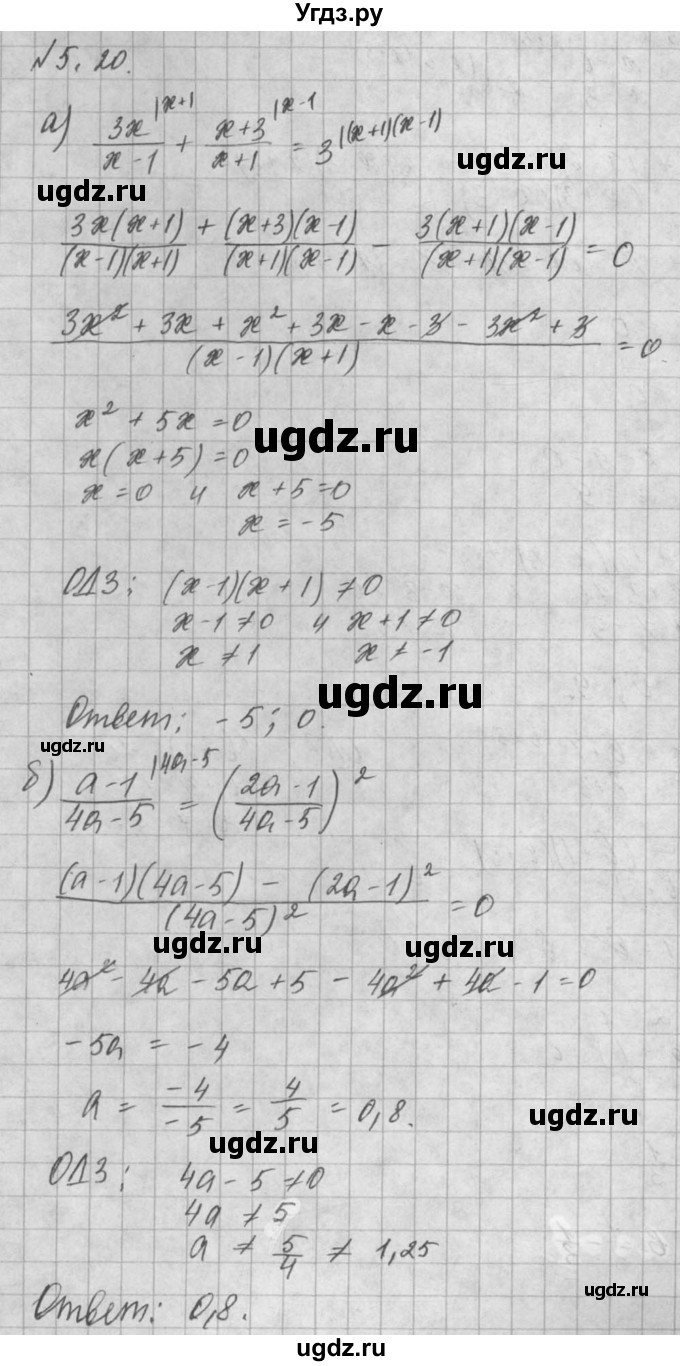 Угдз.ру
№5.20.
а) 3x/(x-1) |x+1 + (x+3)/(x+1) |x-1 = 3 |(x+1)(x-1)
ugdz.ru ugdz.ru
3x(x+1)/((x-1)(x+1)) + (x+3)(x-1)/((x+1)(x-1)) - 3(x+1)(x-1)/((x+1)(x-1)) = 0
(3x² + 3x + x² + 3x - x - 3 - 3x² + 3)/((x-1)(x+1)) = 0
x² + 5x = 0
ugdz.ru
x(x+5) = 0
x = 0 и x+5 = 0
x = -5
ОДЗ: (x-1)(x+1) ≠ 0
x-1 ≠ 0 и x+1 ≠ 0
x ≠ 1 x ≠ -1
ugdz.ru
Ответ: -5; 0.
ugdz.ru
б) (a-1)/(4a-5) |4a-5 = ((2a-1)/(4a-5))²
((a-1)(4a-5) - (2a-1)²)/(4a-5)² = 0
ugdz.ru ugdz.ru
4a² - 4a - 5a + 5 - 4a² + 4a - 1 = 0
-5a = -4
a = -4/-5 = 4/5 = 0,8.
ugdz.ru ugdz.ru
ОДЗ: 4a - 5 ≠ 0
4a ≠ 5
a ≠ 5/4 ≠ 1,25
ugdz.ru
Ответ: 0,8.
ugdz.ru